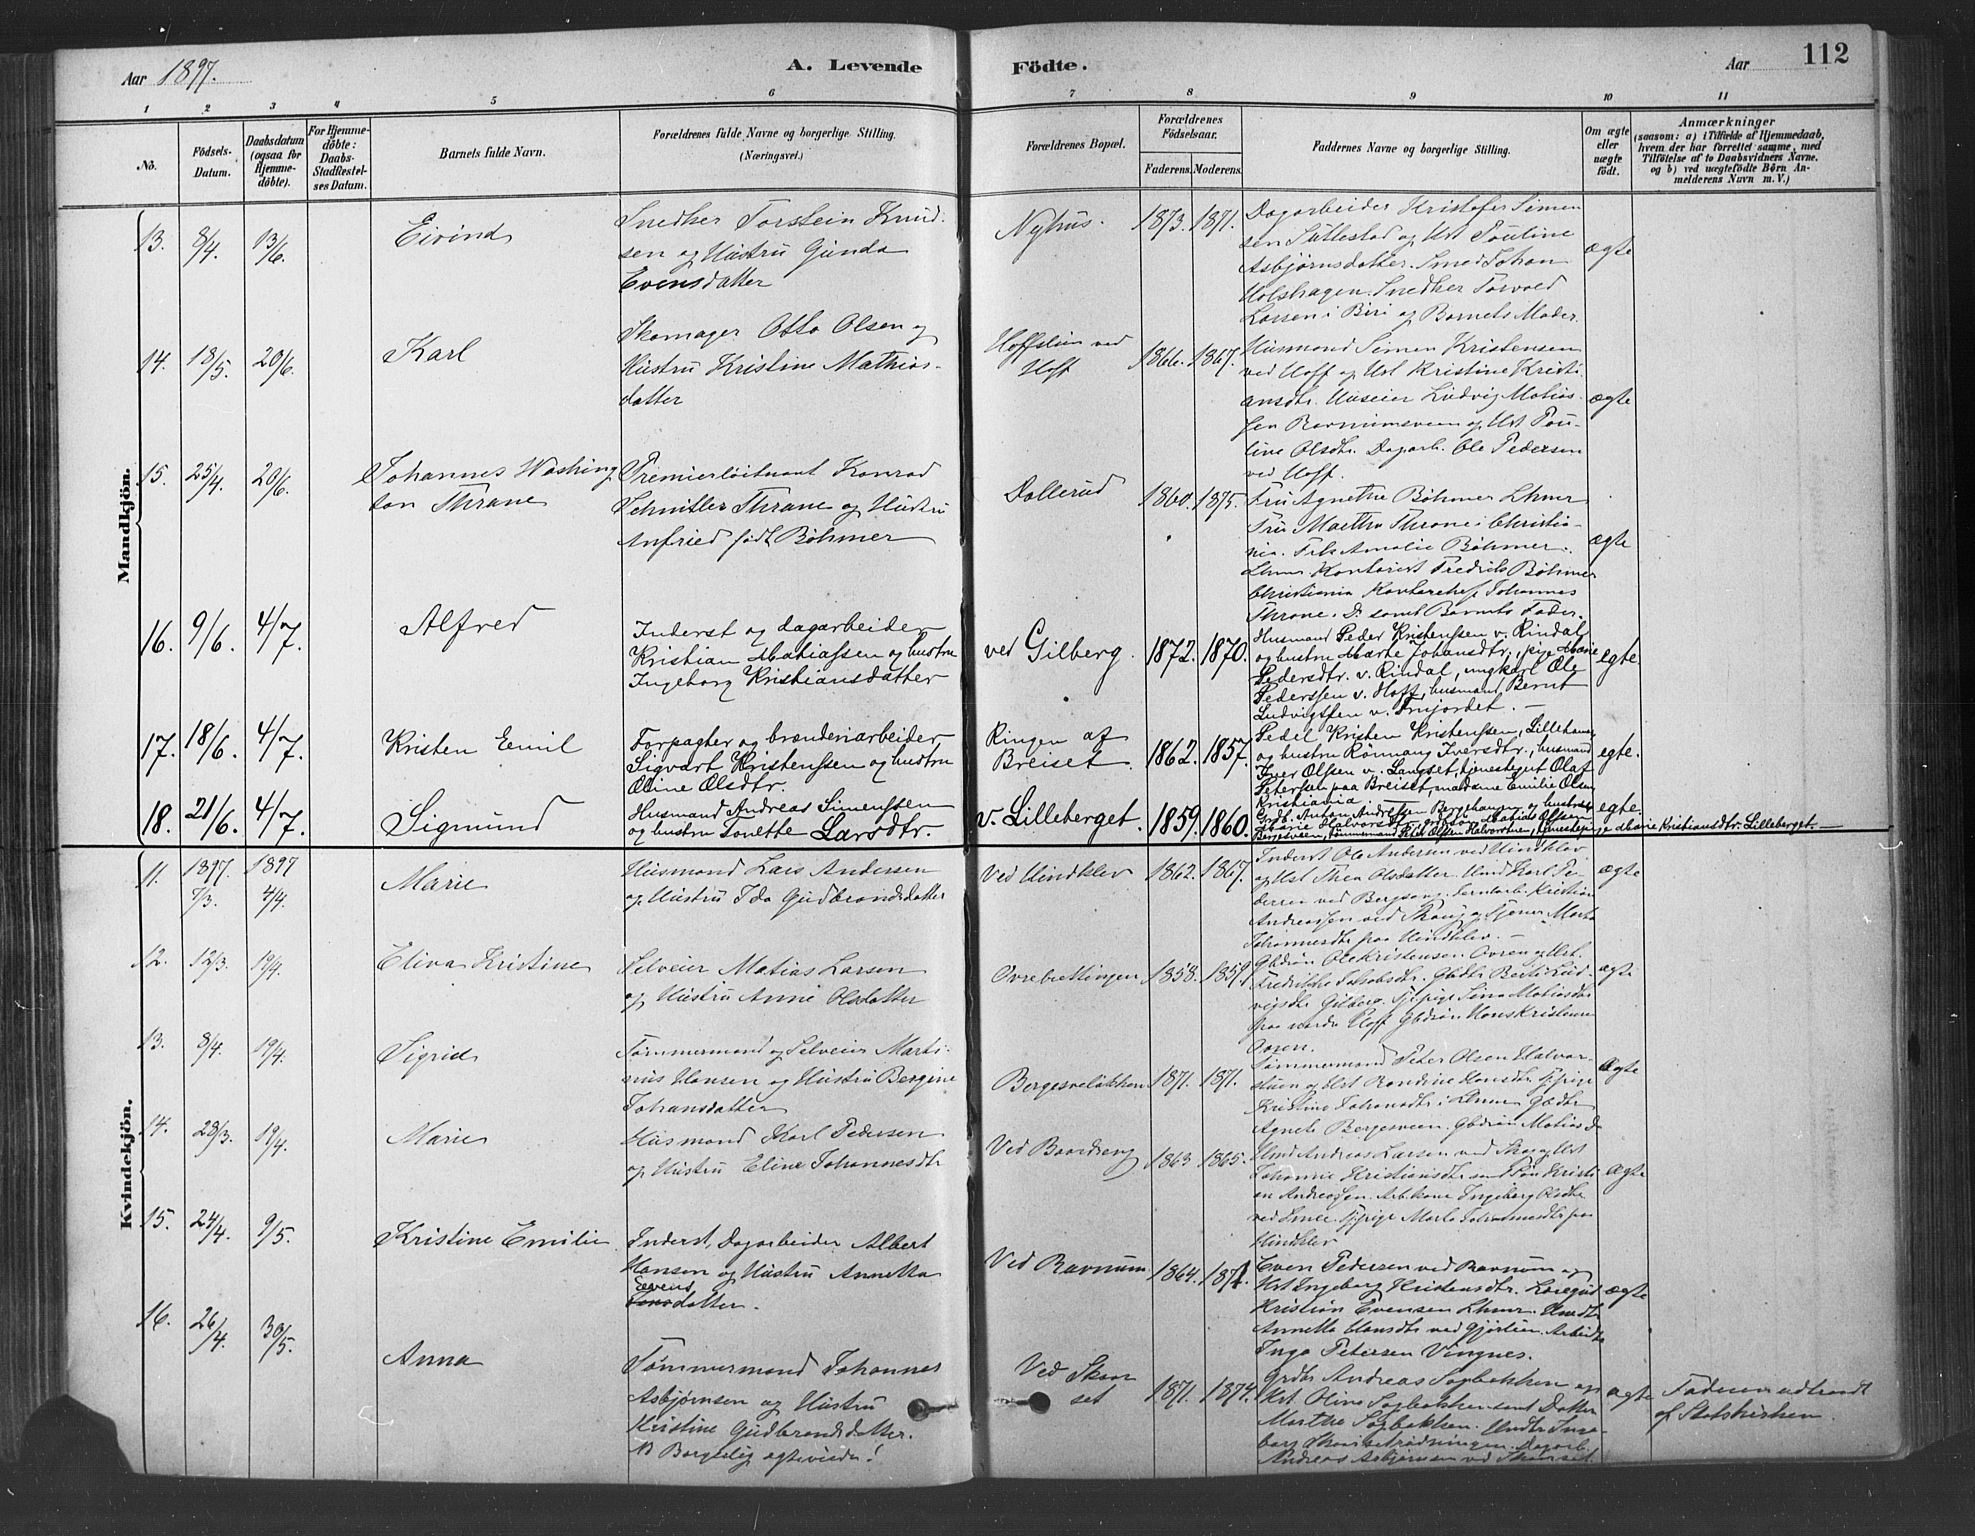 Aar 1897.
A. Levende
Födte.
Aar
112
1 2 3 4 5 6 7 8 9 10 11
No.
Födsels-Datum.
Daabsdatum (ogsaa for Hjemme-döbte).
For Hjemme-döbte: Daabs-Stadfæstel-ses Datum.
Barnets fulde Navn.
Forældrenes fulde Navne og borgerlige Stilling. (Næringsvei.)
Forældrenes Bopæl.
Forældrenes Födselsaar.
Faderens. Moderens.
Faddernes Navne og borgerlige Stilling.
Om ægte eller uægte födt.
Anmærkninger
(saasom: a) i Tilfælde af Hjemmedaab, hvem der har forrettet samme, med Tilföielse af to Daabsvidners Navne. og b) ved uægtefödte Börn An-melderens Navn m. V.)
Mandkjön.
13. 8/4. 13/6. Eivind
Snedker Torstein Knud-
sen og Hustru Gunda
Evensdatter
Nyhus. 1873. 1871.
Dagarbeider Kristofer Simen
sen Sullestad og Hst Pauline
Asbjørnsdatter. Smed Johan
Holshagen. Snedker Torvald
Larsen i Biri og Barnets Moder.
ægte
14. 18/5. 20/6. Karl
Skomager Otto Olsen og
Hustru Kristine Mathias-
datter
Hoffslien ved
Hoff
1866. 1867.
Husmand Simen Kristensen
ved Hoff og Hst Kristine Kristi
ansdtr. Huseier Ludvig Matias
sen Ravnumsveen og Hst Pau-
line Olsdtr. Dagarb. Ole Pedersen
ved Hoff.
ægte
15. 25/4. 20/6. Johannes Washing
ton Thrane
Premierløitnant Konrad
Schnitler Thrane og Hustru
Anfried født Bøhmer
Dallerud 1860. 1875.
Fru Agnethe Bøhmer Lhmr
Fru Martha Thrane i Christia-
nia. Frk Amalie Bøhmer.
Lhmr Kontorist Fredrik Bøhmer
Christiania Kontorchef Johannes
Thrane. D. samt Barnets Fader.
ægte
16. 9/6. 4/7. Alfred
Inderst og dagarbeider
Kristian Matiassen og hustru
Ingeborg Kristiansdatter
ved Gilberg. 1872. 1870.
Husmand Peder Kristenssen v. Rindal
og hustru Marte Johansdtr., pige Marie
Pedersdtr. v. Rindal, ungkarl Ole
Pederssen v. Hoff, husmand Bernt
Ludvigssen v. Frujordet. —
egte.
17. 18/6. 4/7. Kristen Emil
Forpagter og brænderiarbeider
Sigvart Kristenssen og hustru
Oline Olsdtr.
Ringen af
Breiset.
1862. 1857.
Pedel Kristen Kristenssen, Lillehamer
og hustru Rønnaug Iversdtr., husmand
Iver Olssen v. Langset, tjenestegut Olaf
Peterssen paa Breiset, madame Emilie Olsen
Kristiania
egte.
18. 21/6. 4/7. Sigmund
Husmand Andreas Simenssen
og hustru Lonette Larsdtr.
v. Lilleberget. 1859. 1860.
Grdb. Anton Andressen Bergehaugen og hustru
Marie Halvorsdtr., grdsøn Matias Olssen
Bergesveen, tømmermand Peter Olssen Halvorstuen, tjenestepige Marie Kristiansdtr. Lilleberget. —
egte
Kvindekjön.
11. 1897. 7/3. 1897 4/4. Marie
Husmand Lars Andersen
og Hustru Ida Gudbrandsdatter
Ved Hindklev 1862. 1867.
Inderst Ole Andersen ved Hindklev
og Hst Thea Olsdatter. Hmd Karl Pe-
dersen ved Bergseng. Kristian
Andreassen ved Skoug og Tjener Marta
Johannesdtr paa Hindklev. —
ægte
12. 12/3. 19/4. Eliva Kristine
Selveier Matias Larsen
og Hustru Anne Olsdatter
Ovrebættingen 1858. 1859.
Gbdrsøn Ole Kristensen Ovren og Hst
Fredrikke Jakobsdtr. Gbdtr Berte Lud-
vigsdtr Gilberg. Tj.pige Lina Matiasdtr
paa nordre Hoff Gbdrsøn Hans Kristensen
Ovren.
ægte
13. 8/4. 19/4. Sigrid
Tømmermand og Selveier Marti-
nus Hansen og Hustru Bergine
Johansdatter
Bergesveløkken 1871. 1871.
Tømmermand Peter Olsen Halvor-
stuen og Hst Randine Hansdtr. Tj.pige
Kristine Johansdtr i Lhmr Gbdtr
Agnete Bergesveen. Gbdrsøn Matias D
ægte
14. 28/3. 19/4. Marie
Husmand Karl Pedersen
og Hustru Eline Johannesdtr
Ved Baardseng 1863 1865.
Hmd Andreas Larsen ved Skog og Hst
Johanne Kristiansdtr samt Kristi
an Andreassen. Arb.kone Ingeborg Olsdtr
ved Smee. Tj.pige Marta Johannesdtr paa
Hindklev
ægte
15. 24/4. 9/5. Kristine Emilie
Inderst, Dagarbeider Albert
Hansen og Hustru Annetta
Eevend
datter.
Ved Ravnum 1864. 1871.
Even Pedersen ved Ravnum og
Hst Ingeborg Kristensdtr.
Kristian Evensen Lhmr. Hmdtr
Annetta Hansdtr ved Gjørlien. Arbeidr
Inga Petersen Vingnes.
ægte
16. 26/4. 30/5. Anna
Tømmermand Johannes
Asbjørnsen og Hustru
Kristine Gudbrandsdatter.
NB Borgerlig egteviede!
Ved Skon
set
1871. 1874.
Grdbr Andreas Sagbakken og
Hst Oline Sagbakken samt Datter
Marthe Sagbakken. Hmdtr Inge
borg. Dagarb.
Andreas Asbjørnsen ved Skonset
ægte
Faderen udtraadt
af Statskirken.